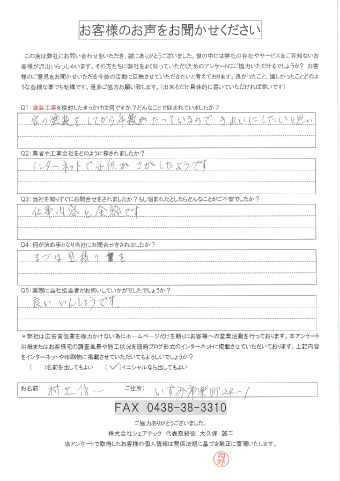 お客様のお声をお聞かせください
この度は弊社にお問い合わせをいただき、誠にありがとうございました。世の中には弊社の存在やサービスをご存知ないお
客様が沢山いらっしゃいます。その方たちに弊社をよく知っていただくためのアンケートにご協力いただけるでしょうか？ お客
様のご意見をお聞かせいただき今後の活動に反映させていただきたいと考えております。良かったこと、嬉しかったことどのよ
うな些細な事でも結構です。是非ご協力お願い致します。（出来るだけ具体的に書いていただければ幸いです）
Q1：塗装工事を検討したきっかけは何ですか？どんなことで悩まれていましたか？
家の塗装をしてから年数がたっているので きれいにしたいと思い
Q2：業者や工事会社をどのように探されましたか？
インターネットで子供がさがしたようです
Q3：当社を知りすぐにお問合せをされましたか？もし悩まれたとしたらどんなことがご不安でしたか？
仕事内容と金額です
Q4：何が決め手となり当社にお問合せをされましたか？
まずは見積り
Q5：実際に当社担当者がお伺いしていかがでしたでしょうか？
良いいんしょうです。
＊弊社は広告宣伝費を極力かけない為にホームページだけを頼りにお客様への営業活動を行っております。本アンケート
用紙またはお客様宅の調査風景や施工状況を随時ブログ形式のインターネットに掲載させていただいております。上記内容
をインターネットや印刷物に掲載させていただいてもよろしいでしょうか？
（　）名前を出してもよい （✓）イニシャルなら出してもよい
お名前： ご住所： いすみ市
FAX 0438-38-3310
ご協力ありがとうございました。
株式会社シェアテック 代表取締役 大久保 誠二
当アンケートで取得したお客様の個人情報は関係法規に基づき厳正に管理いたします。